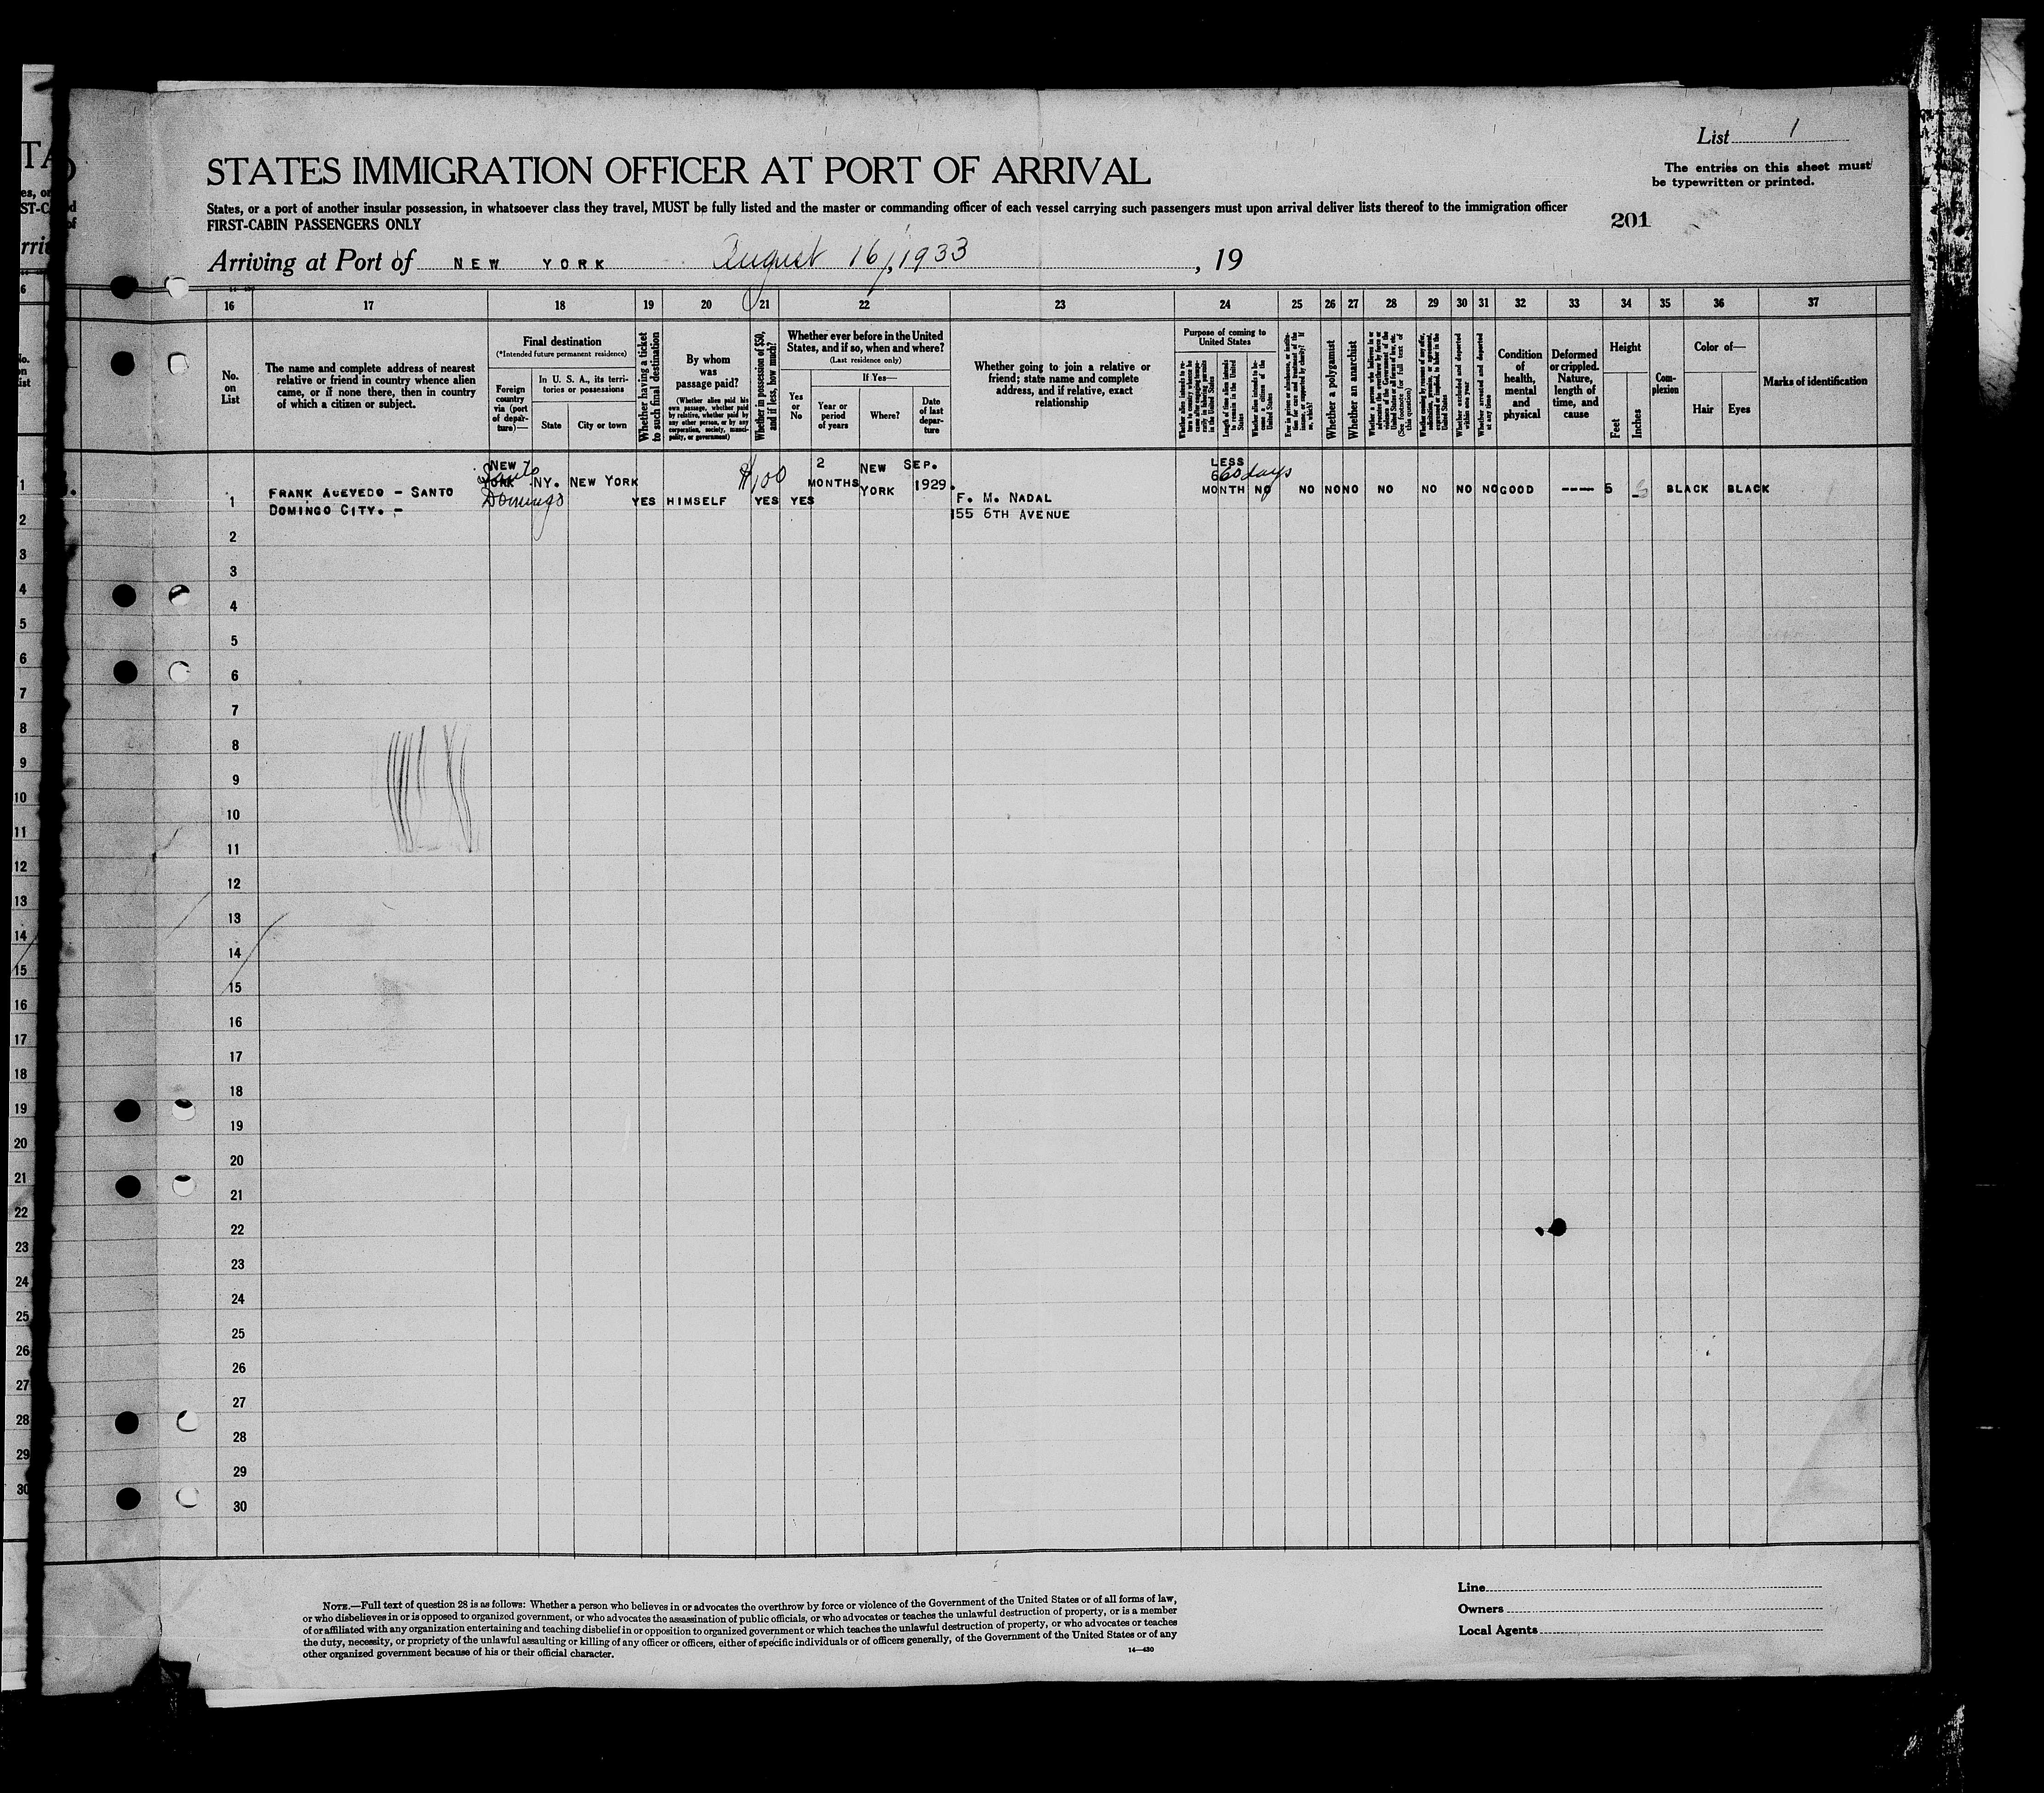 List 1
The entries on this sheet must
be typewritten or printed.
STATES IMMIGRATION OFFICER AT PORT OF ARRIVAL
States, or a port of another insular possession, in whatsoever class they travel, MUST be fully listed and the master or commanding officer of each vessel carrying such passengers must upon arrival deliver lists thereof to the immigration officer
FIRST-CABIN PASSENGERS ONLY
201
Arriving at Port of NEW YORK August 16, 1933, 19
16 17 18 19 20 21 22 23 24 25 26 27 28 29 30 31 32 33 34 35 36 37
No.
on
List
The name and complete address of nearest
relative or friend in country whence alien
came, or if none there, then in country
of which a citizen or subject.
Final destination
(*Intended future permanent residence)
Foreign
country
via (port
of depar-
ture)—
In U. S. A., its terri-
tories or possessions
State
City or town
Whether having a ticket
to such final destination
By whom
was
passage paid?
(Whether alien paid his
own passage, whether paid
by relative, whether paid by
any other person, or by any
corporation, society, munici-
pality, or government)
Whether in possession of $50,
and if less, how much?
Whether ever before in the United
States, and if so, when and where?
(Last residence only)
Yes
or
No
If Yes—
Year or
period
of years
Where?
Date
of last
depar-
ture
Whether going to join a relative or
friend; state name and complete
address, and if relative, exact
relationship
Purpose of coming to
United States
Length of time alien intends
to remain in the United
States
Whether alien intends to be-
come a citizen of the
United States
Whether a polygamist
Whether an anarchist
Whether arrested and deported
at any time
Condition
of
health,
mental
and
physical
Deformed
or crippled.
Nature,
length of
time, and
cause
Height
Feet
Inches
Com-
plexion
Color of—
Hair
Eyes
Marks of identification
1
FRANK ACEVEDO - SANTO
DOMINGO CITY. -
NEW
YORK
Santo
Domingo
NY.
NEW YORK
YES
HIMSELF
$100
YES
YES
2
MONTHS
NEW
YORK
SEP.
1929.
F. M. NADAL
155 6TH AVENUE
LESS
6
MONTH
60 days
NO
NO
NO
NO
NO
NO
NO
NO
GOOD
----
5
BLACK
BLACK
2
3
4
5
6
7
8
9
10
11
12
13
14
15
16
17
18
19
20
21
22
23
24
25
26
27
28
29
30
NOTE.—Full text of question 28 is as follows: Whether a person who believes in or advocates the overthrow by force or violence of the Government of the United States or of all forms of law,
or who disbelieves in or is opposed to organized government, or who advocates the assassination of public officials, or who advocates or teaches the unlawful destruction of property, or is a member
of or affiliated with any organization entertaining and teaching disbelief in or opposition to organized government or which teaches the unlawful destruction of property, or who advocates or teaches
the duty, necessity, or propriety of the unlawful assaulting or killing of any officer or officers, either of specific individuals or of officers generally, of the Government of the United States or of any
other organized government because of his or their official character.
14—430
Line
Owners
Local Agents